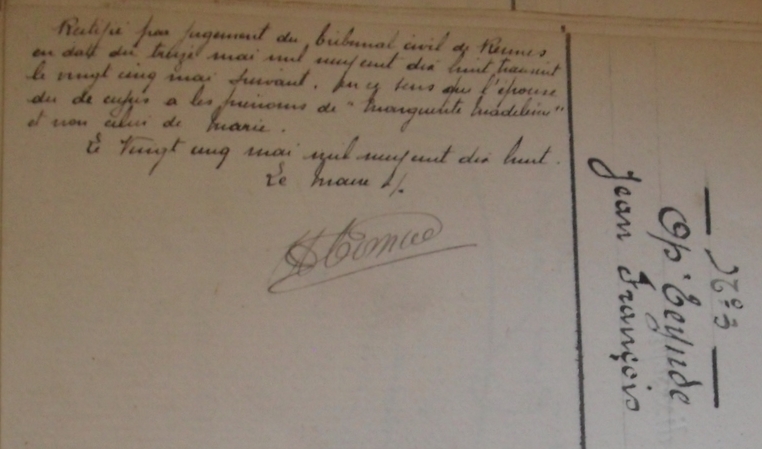 Rectifié par jugement du tribunal civil de Rennes
en date du treize mai mil neuf cent dix huit, transcrit
le vingt cinq mai suivant, en ce sens que l'épouse
du de cujus a les prénoms de "Marguerite Madeleine"
et non celui de Marie.
Le Vingt cinq mai mil neuf cent dix huit.
Le Maire
N° 3
Op'Eeynde
Jean François